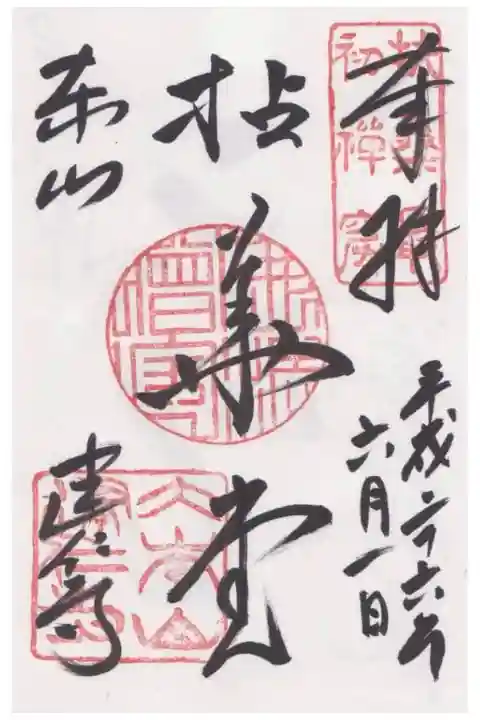 奉拝
平成二十六年
六月一日
拈華堂
東山
建仁寺
扶桑最初禅窟
大本山建仁寺